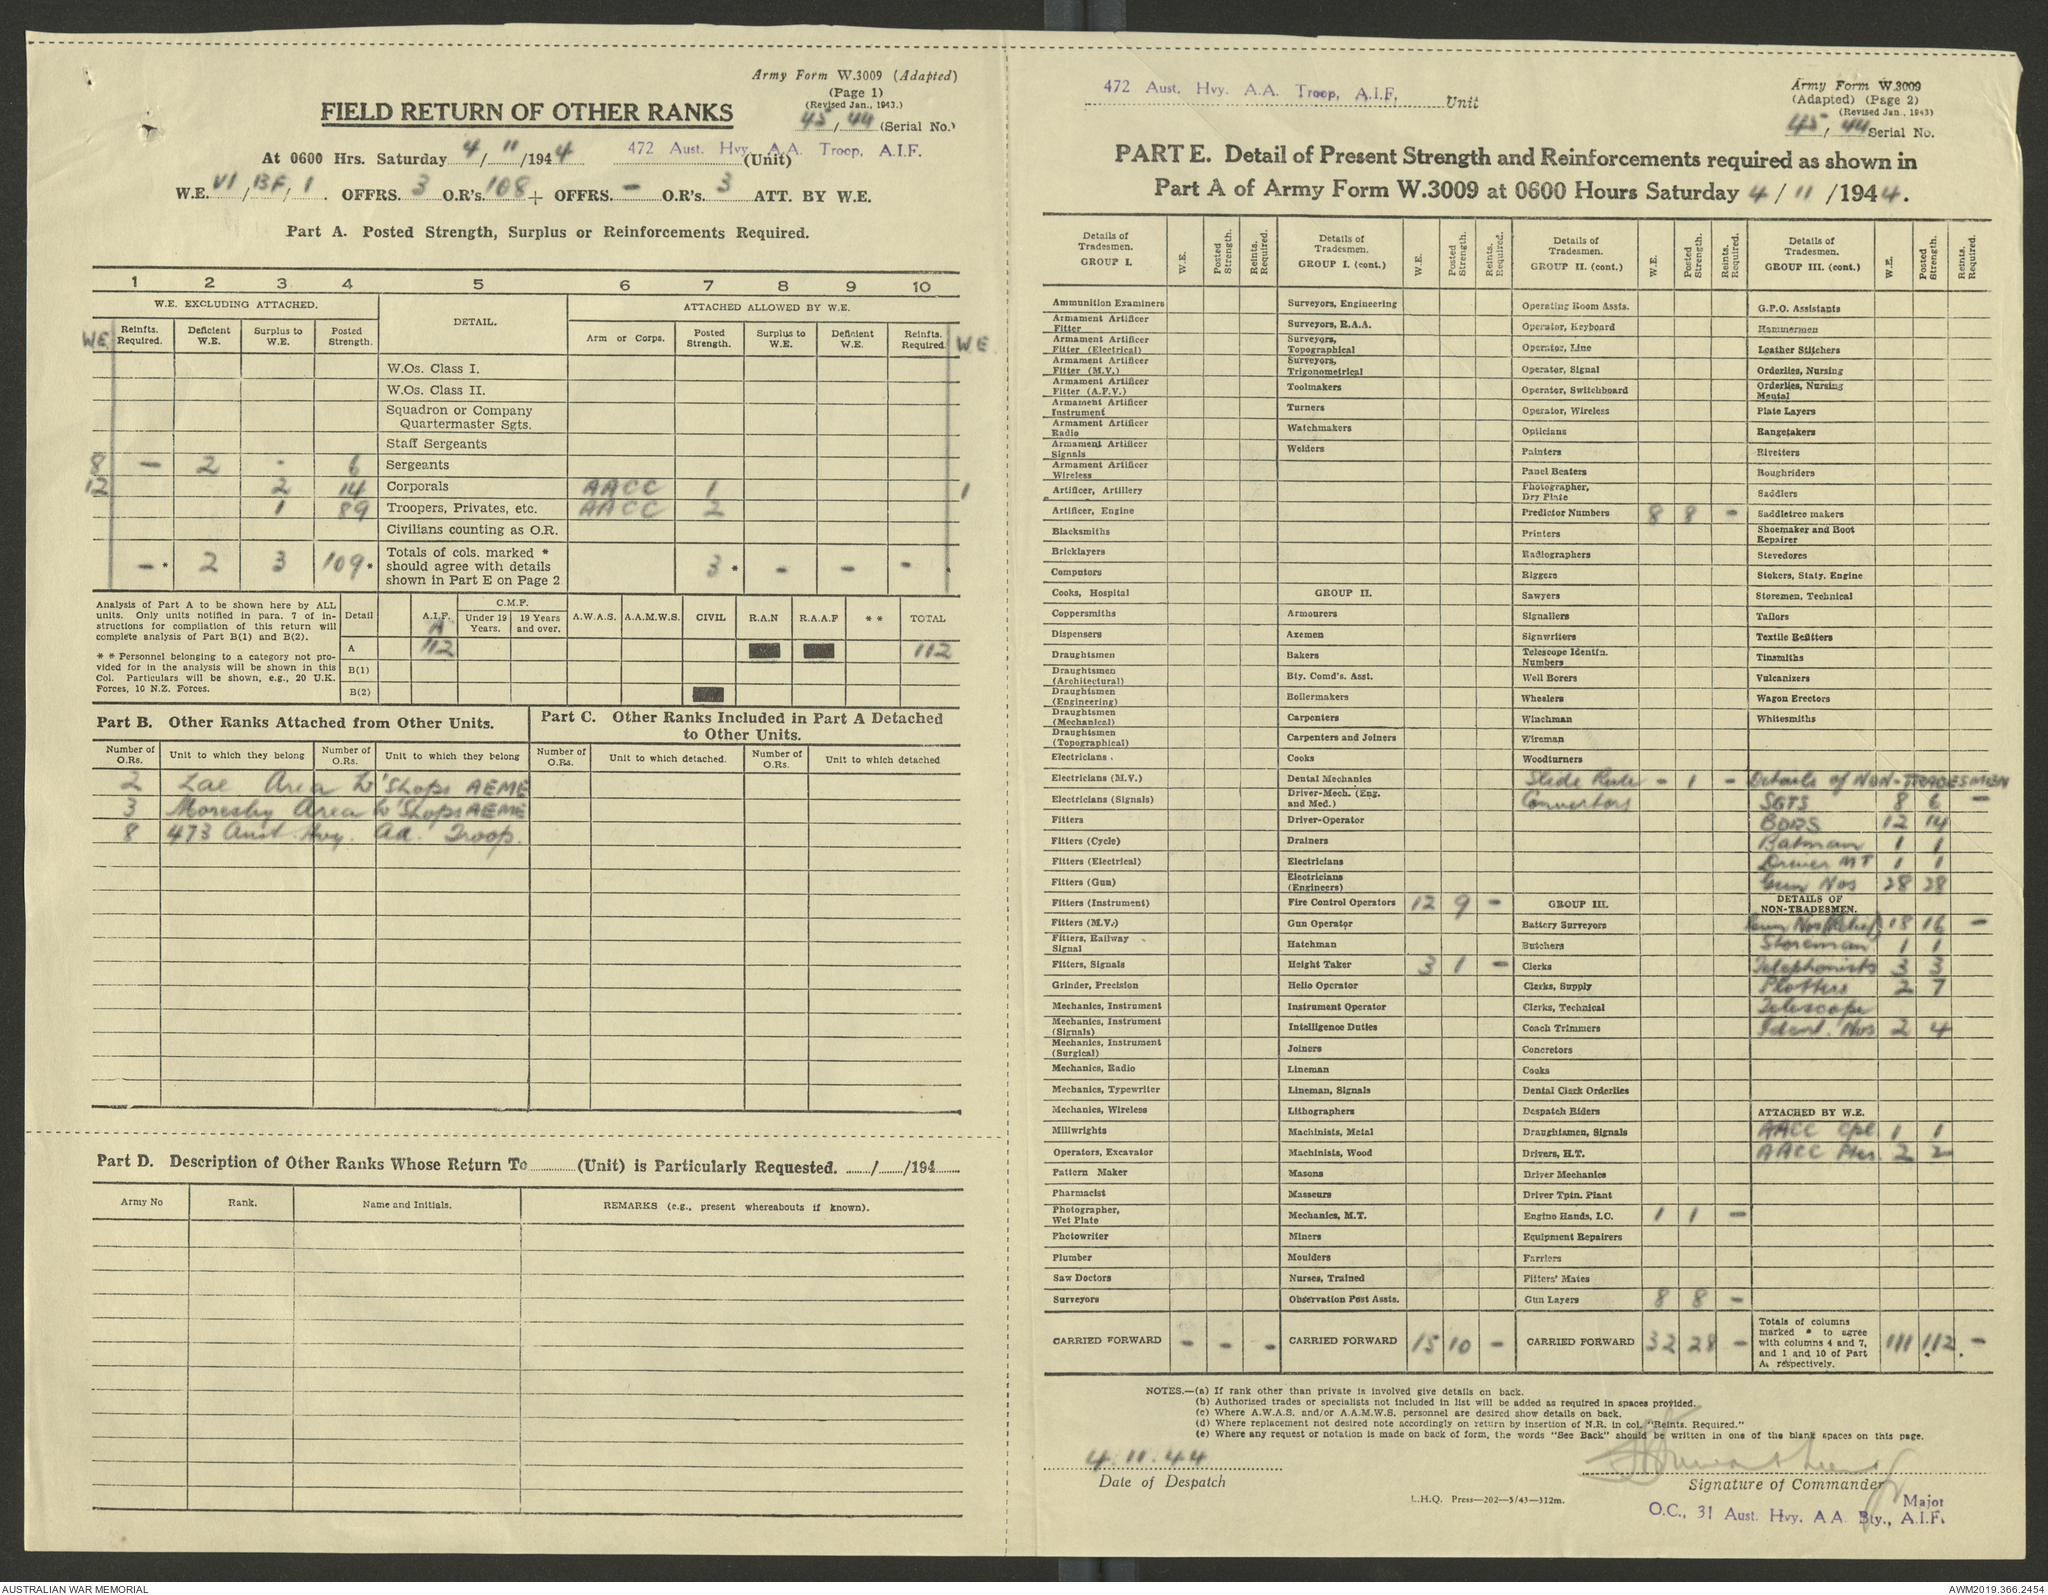 Army Form W.3009 (Adapted)
(Page 1)
(Revised Jan., 1943.)
FIELD RETURN OF OTHER RANKS
45/44 (Serial No.)
At 0600 Hrs. Saturday 4/11/1944 472 Aust. Hvy. A.A. Troop, A.I.F. (Unit)
W.E. VI/BF/1. OFFRS. 3 O.R's. 108 + OFFRS. - O.R's. 3 ATT. BY W.E.
Part A. Posted Strength, Surplus or Reinforcements Required.
1 2 3 4 5 6 7 8 9 10
W.E. EXCLUDING ATTACHED. DETAIL. ATTACHED ALLOWED BY W.E.
W.E. Reinfts. Required. Deficient W.E. Surplus to W.E. Posted Strength. Arm or Corps. Posted Strength. Surplus to W.E. Deficient W.E. Reinfts. Required. W.E.
W.Os. Class I.
W.Os. Class II.
Squadron or Company
Quartermaster Sgts.
Staff Sergeants
8 - 2 - 6 Sergeants
12 2 14 Corporals AACC 1 1
1 89 Troopers, Privates, etc. AACC 2
Civilians counting as O.R.
- * 2 3 109 * Totals of cols. marked * should agree with details shown in Part E on Page 2 3 * - - -
Analysis of Part A to be shown here by ALL units. Only units notified in para. 7 of instructions for compilation of this return will complete analysis of Part B(1) and B(2).
* * Personnel belonging to a category not provided for in the analysis will be shown in this Col. Particulars will be shown, e.g., 20 U.K. Forces, 10 N.Z. Forces.
Detail A.I.F. C.M.F. Under 19 Years. 19 Years and over. A.W.A.S. A.A.M.W.S. CIVIL R.A.N R.A.A.F * * TOTAL
A 112 112
B(1)
B(2)
Part B. Other Ranks Attached from Other Units.
Number of O.Rs. Unit to which they belong Number of O.Rs. Unit to which they belong
2 Lae Area W'Shops AEME
3 Moresby Area W'Shops AEME
8 473 Aust. Hvy. AA. Troop.
Part C. Other Ranks Included in Part A Detached to Other Units.
Number of O.Rs. Unit to which detached. Number of O.Rs. Unit to which detached
Part D. Description of Other Ranks Whose Return To (Unit) is Particularly Requested. / /194
Army No Rank. Name and Initials. REMARKS (e.g., present whereabouts if known).
472 Aust. Hvy. A.A. Troop, A.I.F. Unit
Army Form W.3009
(Adapted) (Page 2)
(Revised Jan., 1943)
45/44 Serial No.
PART E. Detail of Present Strength and Reinforcements required as shown in
Part A of Army Form W.3009 at 0600 Hours Saturday 4/11/1944.
Details of Tradesmen. GROUP I. W.E. Posted Strength. Reints. Required.
Ammunition Examiners
Armament Artificer Fitter
Armament Artificer Fitter (Electrical)
Armament Artificer Fitter (M.V.)
Armament Artificer Fitter (A.F.V.)
Armament Artificer Instrument
Armament Artificer Radio
Armament Artificer Signals
Armament Artificer Wireless
Artificer, Artillery
Artificer, Engine
Blacksmiths
Bricklayers
Computors
Cooks, Hospital
Coppersmiths
Dispensers
Draughtsmen
Draughtsmen (Architectural)
Draughtsmen (Engineering)
Draughtsmen (Mechanical)
Draughtsmen (Topographical)
Electricians
Electricians (M.V.)
Electricians (Signals)
Fitters
Fitters (Cycle)
Fitters (Electrical)
Fitters (Gun)
Fitters (Instrument)
Fitters (M.V.)
Fitters, Railway Signal
Fitters, Signals
Grinder, Precision
Mechanics, Instrument
Mechanics, Instrument (Signals)
Mechanics, Instrument (Surgical)
Mechanics, Radio
Mechanics, Typewriter
Mechanics, Wireless
Millwrights
Operators, Excavator
Pattern Maker
Pharmacist
Photographer, Wet Plate
Photowriter
Plumber
Saw Doctors
Surveyors
CARRIED FORWARD - - -
Details of Tradesmen. GROUP I. (cont.) W.E. Posted Strength. Reints. Required.
Surveyors, Engineering
Surveyors, R.A.A.
Surveyors, Topographical
Surveyors, Trigonometrical
Toolmakers
Turners
Watchmakers
Welders
GROUP II.
Armourers
Axemen
Bakers
Bty. Comd's. Asst.
Boilermakers
Carpenters
Carpenters and Joiners
Cooks
Dental Mechanics
Driver-Mech. (Eng. and Med.)
Driver-Operator
Drainers
Electricians
Electricians (Engineers)
Fire Control Operators 12 9 -
Gun Operator
Hatchman
Height Taker 3 1 -
Helio Operator
Instrument Operator
Intelligence Duties
Joiners
Lineman
Lineman, Signals
Lithographers
Machinists, Metal
Machinists, Wood
Masons
Masseurs
Mechanics, M.T.
Miners
Moulders
Nurses, Trained
Observation Post Assts.
CARRIED FORWARD 15 10 -
Details of Tradesmen. GROUP II. (cont.) W.E. Posted Strength. Reints. Required.
Operating Room Assts.
Operator, Keyboard
Operator, Line
Operator, Signal
Operator, Switchboard
Operator, Wireless
Opticians
Painters
Panel Beaters
Photographer, Dry Plate
Predictor Numbers 8 8 -
Printers
Radiographers
Riggers
Sawyers
Signallers
Signwriters
Telescope Identfn. Numbers
Well Borers
Wheelers
Winchman
Wireman
Woodturners
Slide Rule - 1 -
Convertors
GROUP III.
Battery Surveyors
Butchers
Clerks
Clerks, Supply
Clerks, Technical
Coach Trimmers
Concretors
Cooks
Dental Clerk Orderlies
Despatch Riders
Draughtsmen, Signals
Drivers, H.T.
Driver Mechanics
Driver Tptn. Plant
Engine Hands, I.C. 1 1 -
Equipment Repairers
Farriers
Fitters' Mates
Gun Layers 8 8 -
CARRIED FORWARD 32 28 -
Details of Tradesmen. GROUP III. (cont.) W.E. Posted Strength. Reints. Required.
G.P.O. Assistants
Hammermen
Leather Stitchers
Orderlies, Nursing
Orderlies, Nursing Mental
Plate Layers
Rangetakers
Rivetters
Roughriders
Saddlers
Saddletree makers
Shoemaker and Boot Repairer
Stevedores
Stokers, Staty. Engine
Storemen, Technical
Tailors
Textile Refitters
Tinsmiths
Vulcanizers
Wagon Erectors
Whitesmiths
Details of NON-TRADESMEN
SGTS 8 6 -
BDRS 12 14
Batman 1 1
Driver MT 1 1
Gun Nos 28 28
DETAILS OF NON-TRADESMEN.
Gun Nos (Relief) 18 16 -
Storeman 1 1
Telephonists 3 3
Plotters 2 7
Telescope
Ident. Nos 2 4
ATTACHED BY W.E.
AACC Cpl 1 1
AACC Ptes. 2 2
Totals of columns marked * to agree with columns 4 and 7, and 1 and 10 of Part A, respectively. 111 112 -
NOTES.—(a) If rank other than private is involved give details on back.
(b) Authorised trades or specialists not included in list will be added as required in spaces provided.
(c) Where A.W.A.S. and/or A.A.M.W.S. personnel are desired show details on back.
(d) Where replacement not desired note accordingly on return by insertion of N.R. in col. "Reints. Required."
(e) Where any request or notation is made on back of form, the words "See Back" should be written in one of the blank spaces on this page.
4.11.44
Date of Despatch
Signature of Commander
L.H.Q. Press—202—5/43—312m.
Major
O.C., 31 Aust. Hvy. A.A. Bty., A.I.F.
AUSTRALIAN WAR MEMORIAL
AWM2019.366.2454